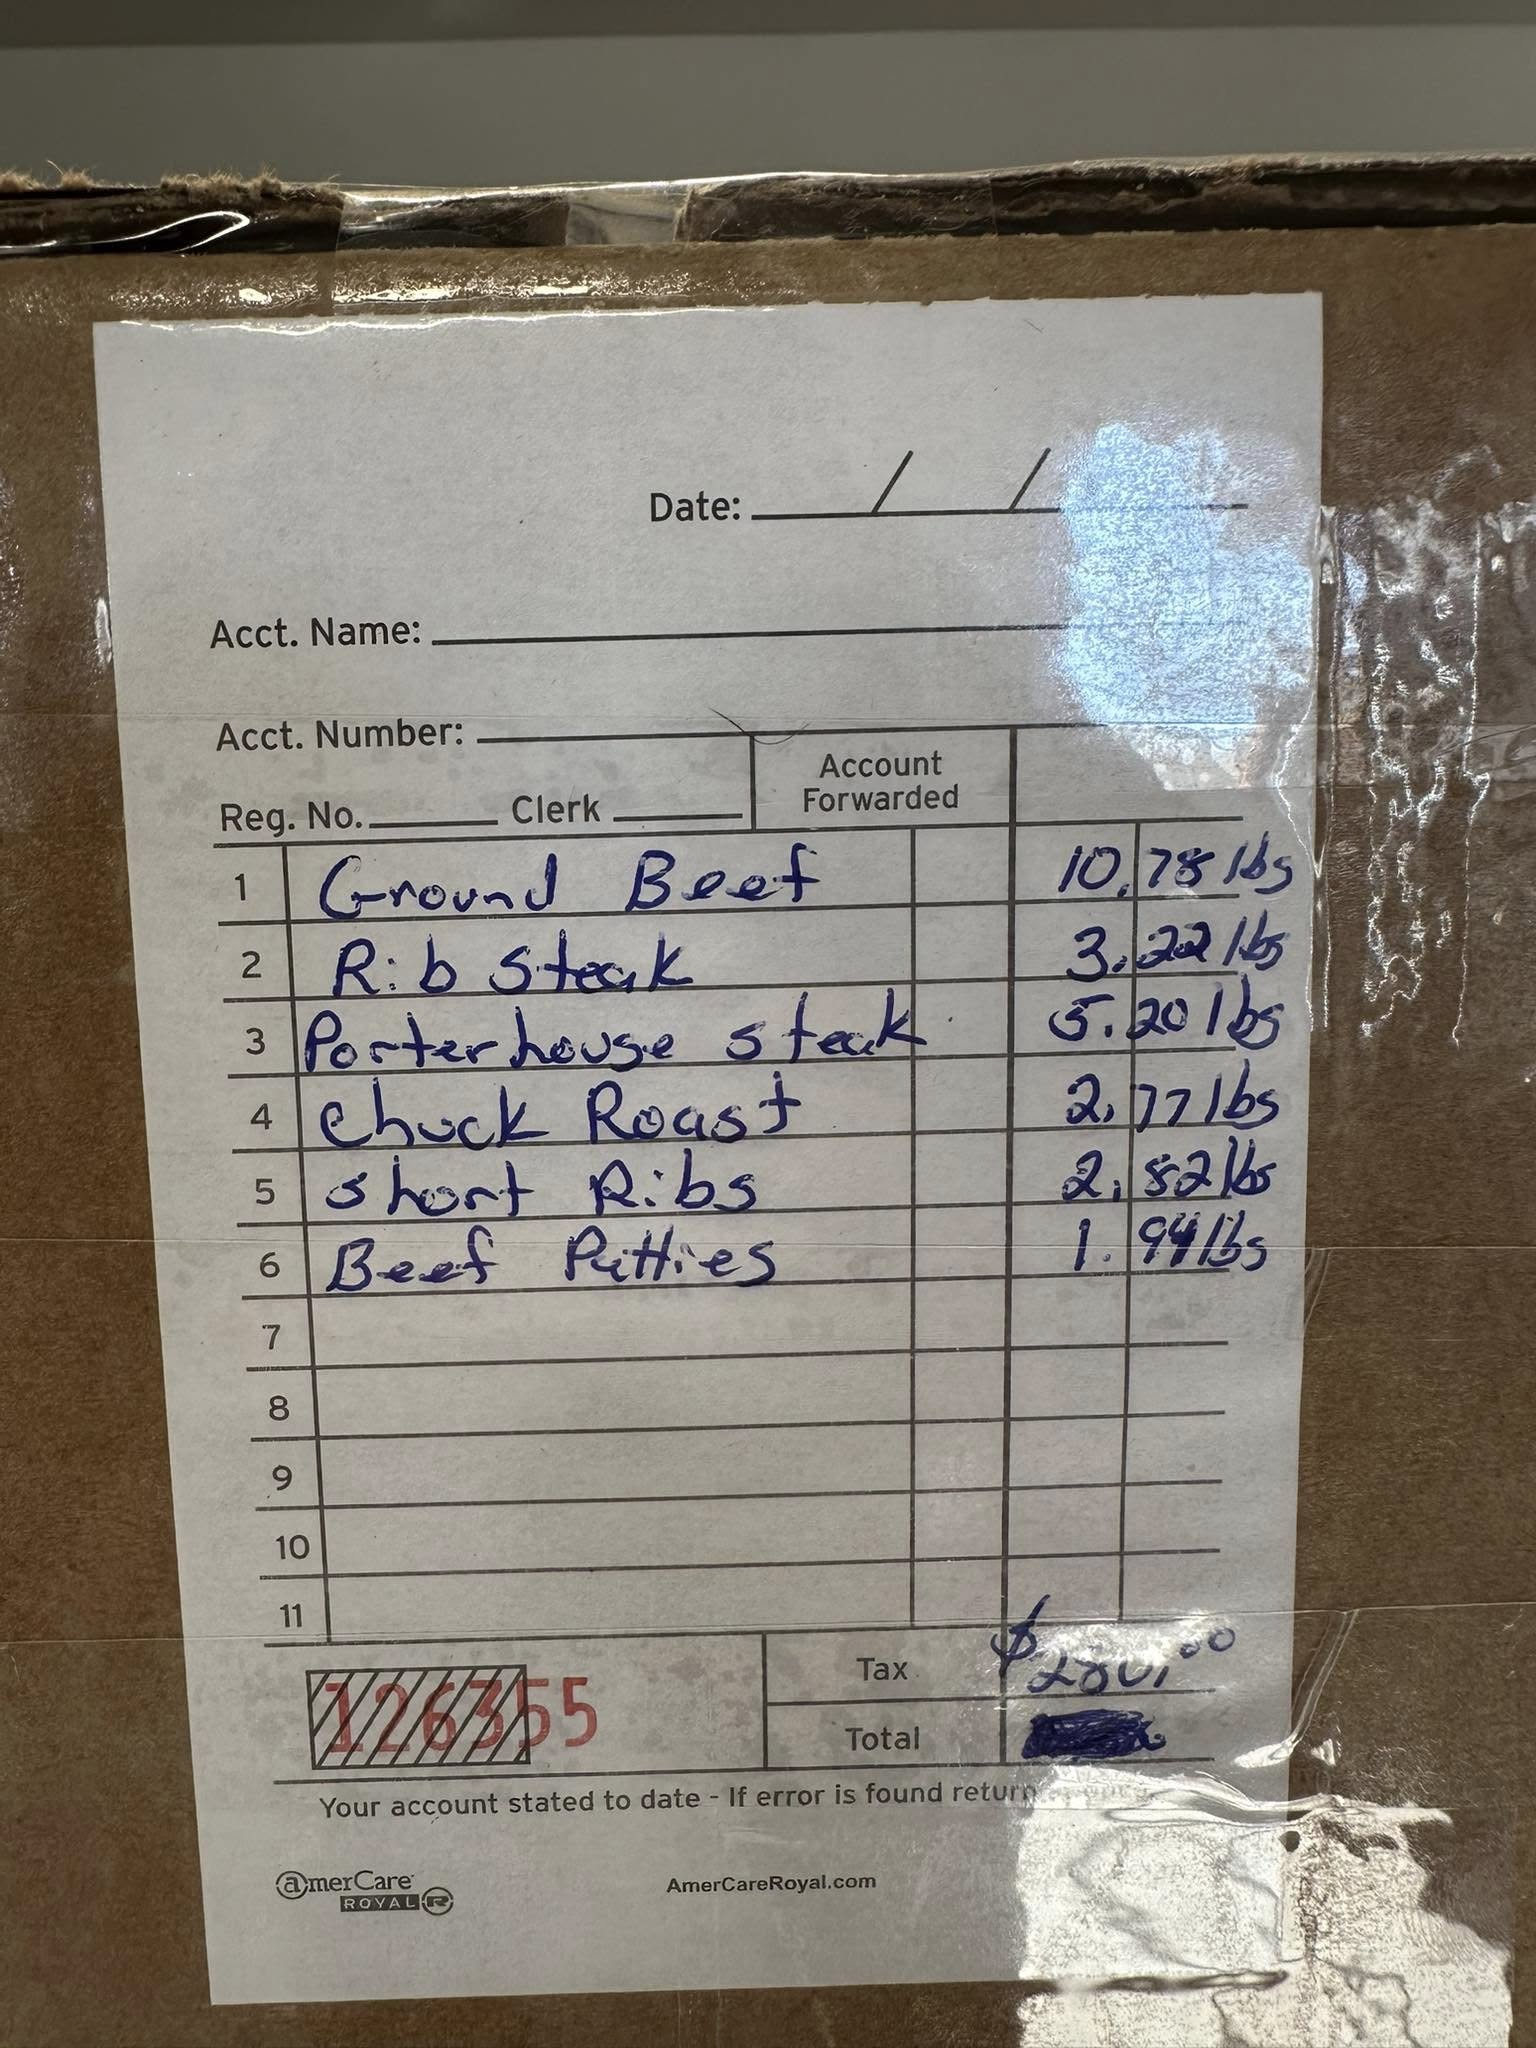 Date: / /
Acct. Name:
Acct. Number:
Account
Forwarded
Reg. No. Clerk
1 Ground Beef 10.78 lbs
2 Rib Steak 3.22 lbs
3 Porterhouse steak 5.20 lbs
4 Chuck Roast 2.77 lbs
5 short Ribs 2.82 lbs
6 Beef Patties 1.94 lbs
7
8
9
10
11
Tax $280.00
126355
Total
Your account stated to date - If error is found return
amerCare
ROYAL R
AmerCareRoyal.com